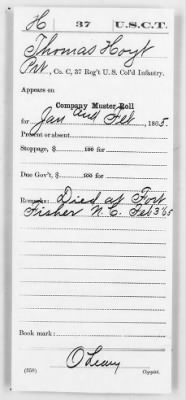 H 37 U.S.C.T.
Thomas Hoyt
Pvt., Co. C, 37 Reg't U. S. Col'd Infantry.
Appears on
Company Muster Roll
for Jan and Feb, 1865.
Present or absent
Stoppage, $ 100 for
Due Gov't, $ 100 for
Remarks: Died at Fort
Fisher N.C. Feb 3 '65
Book mark:
O'Leary
(358) Copyist.